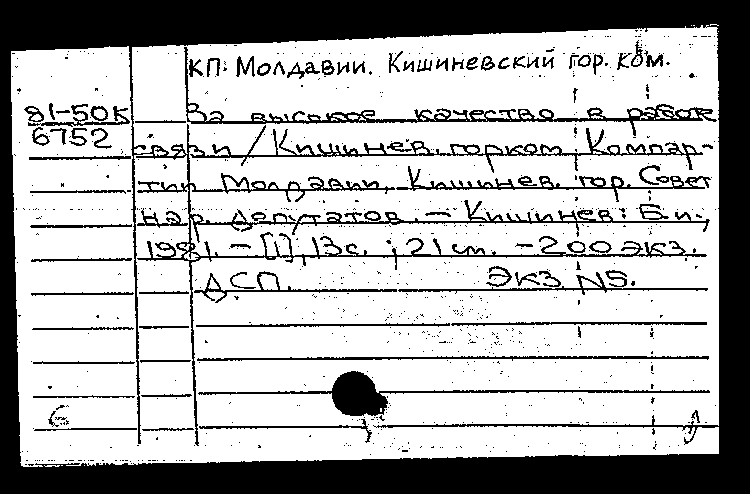 КП Молдавии. Кишиневский гор. ком.
81-50К
6752
За высокое качество в работе
связи / Кишинев. горком Компар-
тии Молдавии, Кишинев. гор. Совет
нар. депутатов. - Кишинев: Б.и.,
1981. - [1], 13с. ; 21 см. - 200 экз.
ДСП. Экз N5.
6